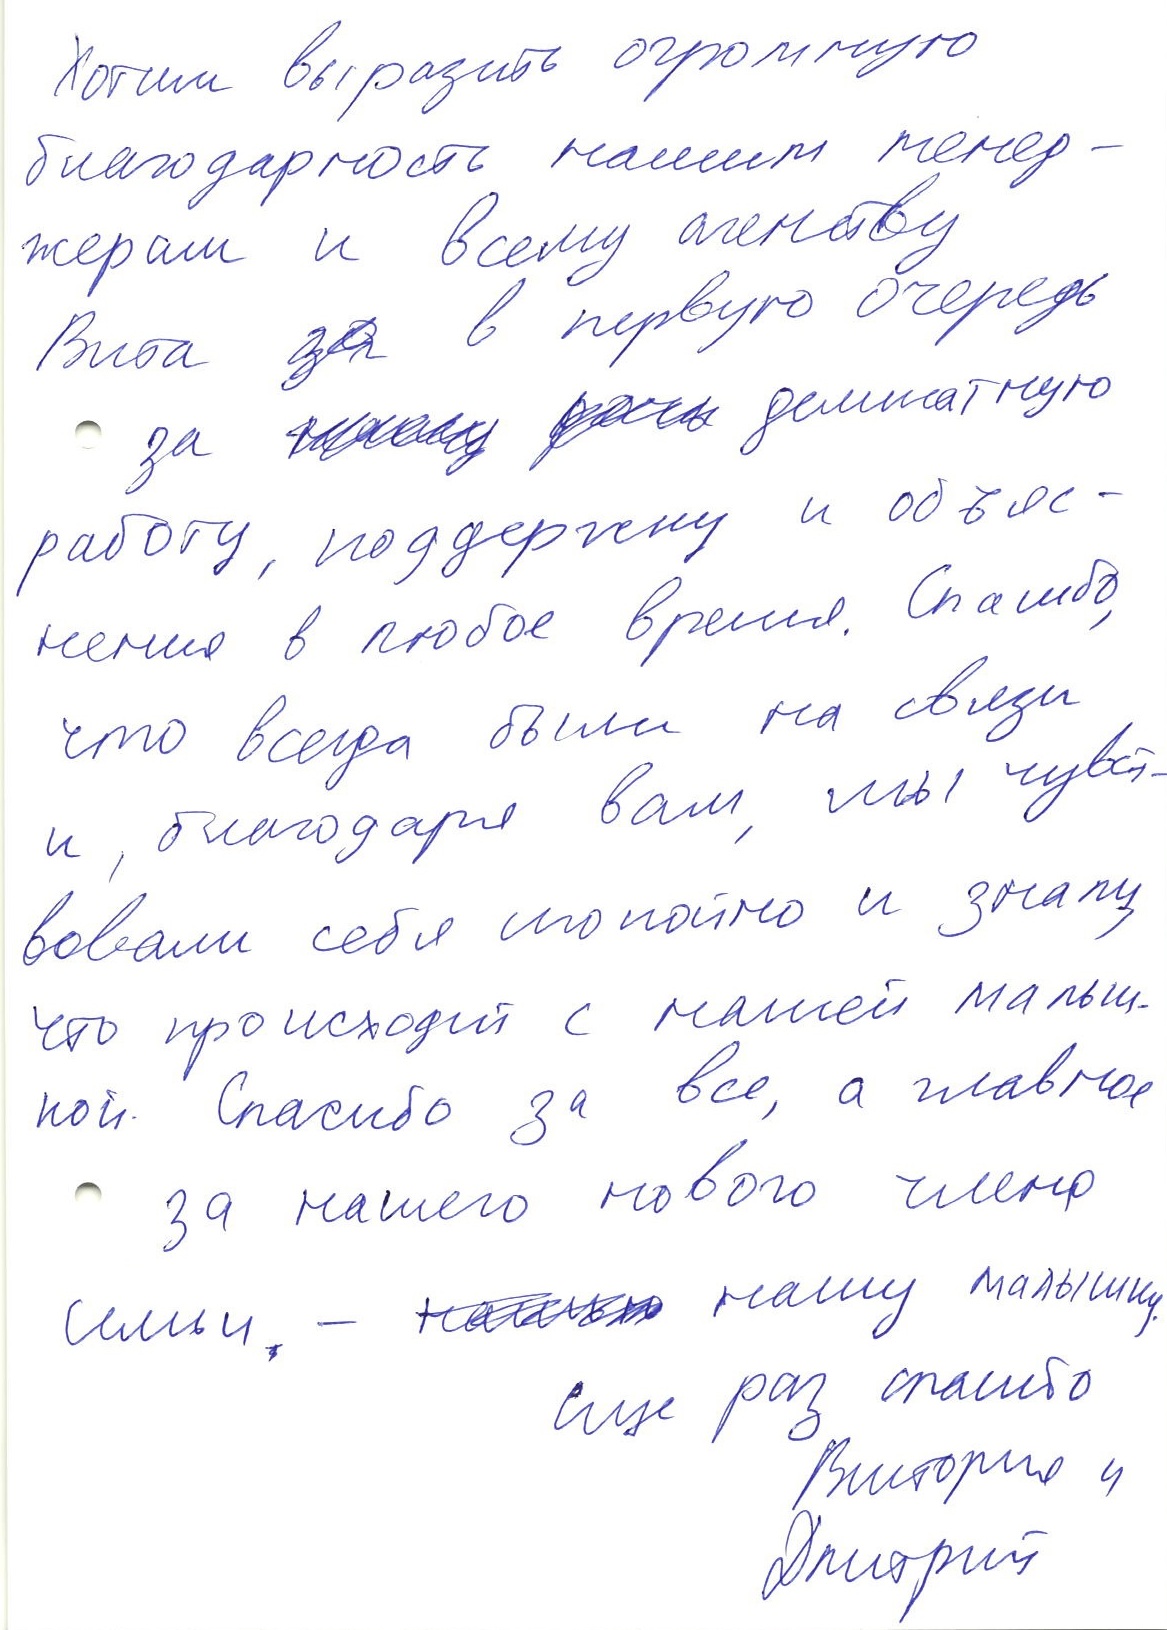 Хотим выразить огромную
благодарность нашим менед-
жерам и всему агенству
Вита в первую очередь
за деликатную
работу, поддержку и объяс-
нения в любое время. Спасибо,
что всегда были на связи
и, благодаря вам, мы чувст-
вовали себя спокойно и знали,
что происходит с нашей малыш-
кой. Спасибо за все, а главное
за нашего нового члена
семьи, – нашу малышку.
Еще раз спасибо
Виктория и
Дмитрий